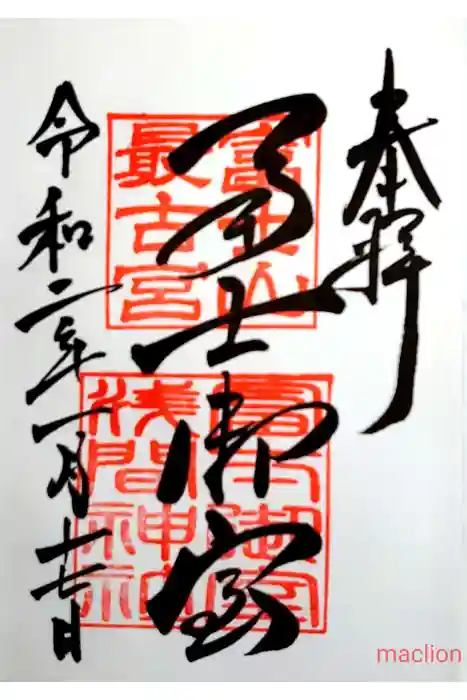 奉拝
冨士御室
令和二年一月十七日
富士山
最古宮
冨士御室
浅間神社
maclion